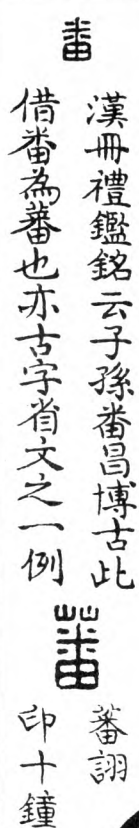 番
漢冊禮鑑銘云子孫番昌博古此
借番為蕃也亦古字省文之一例
蕃
蕃詡
印十鐘